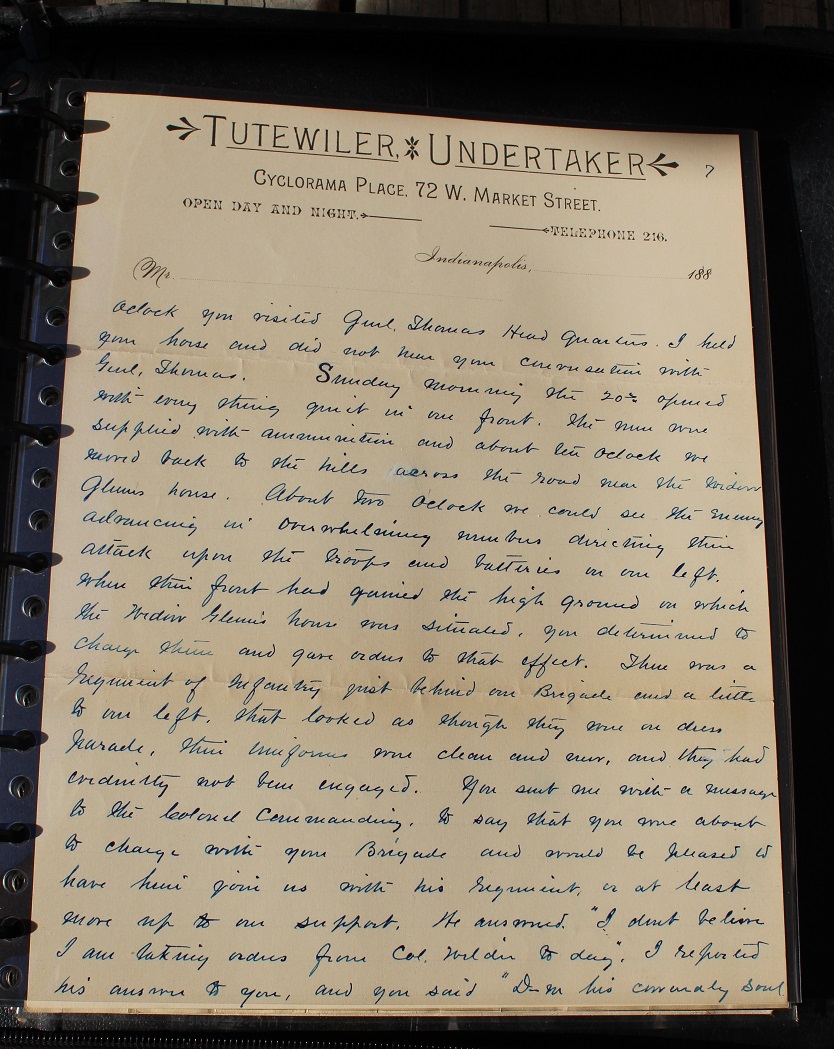 TUTEWILER, UNDERTAKER
7
CYCLORAMA PLACE, 72 W. MARKET STREET.
OPEN DAY AND NIGHT.
TELEPHONE 216.
Indianapolis, 188
Mr
Oclock you visited Genl. Thomas Head Quarters. I held
your horse and did not hear your conversation with
Genl, Thomas. Sunday morning the 20th opened
with every thing quiet in our front. The men were
supplied with ammunition and about ten Oclock we
moved back to the hills across the road near the Widow
Glenns house. About two Oclock we could see the Enemy
advancing in overwhelming numbers directing their
attack upon the troops and batteries on our left.
when their front had gained the high ground on which
the Widow Glenns house was situated, you determined to
charge them and gave orders to that effect. There was a
Regiment of Infantry just behind our Brigade and a little
to our left, that looked as though they were on dress
parade, their uniforms were clean and new, and they had
evidently not been engaged. You sent me with a message
to the Colonel Commanding, to say that you were about
to charge with your Brigade and would be pleased to
have him join us with his Regiment, or at least
move up to our support. He answered. "I dont believe
I am taking orders from Col. Wilder to day". I reported
his answer to you, and you said "D—m his cowardly soul